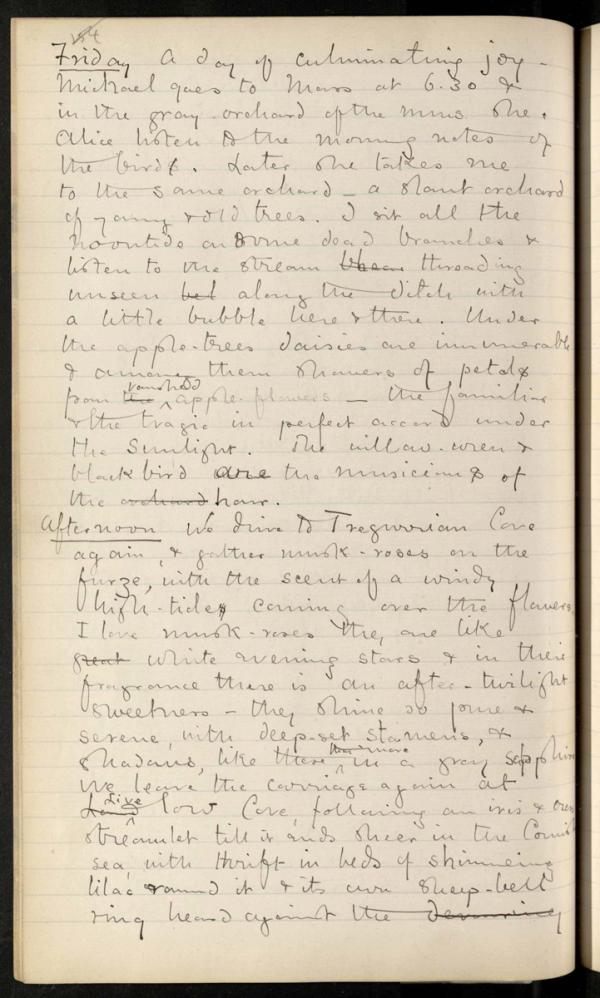 184
Friday A day of culminating joy –
Michael goes to Mass at 6.30 &
in the gray orchard of the nuns she &
Alice listen to the morning notes of
the birds. Later she takes me
to the same orchard – a slant orchard
of young & old trees. I sit all the
noontide on some dead branches &
listen to the stream threading
unseen bel along the ditch with
a little bubble here & there. Under
the apple-trees daisies are innumerable
& among them showers of petals
from the vanished apple-flowers – the familiar
& the tragic in perfect accord under
the sunlight. The willow-wren &
blackbird are the musicians of
the orchard hour.
Afternoon We drive to Cove
again, & gather musk-roses on the
furze, with the scent of a windy
high-tide coming over the flowers.
I love musk-roses they are like
great white evening stars & in their
fragrance there is an after-twilight
sweetness – they shine so pure &
serene, with deep-set stamens, &
shadows, like there in a gray sapphire
We leave the carriage again at
low Cove, following an iris &
streamlet till it ends sheer in the Cornish
sea, with thrift in beds of shimmering
lilac round it & its own sheep-bell
ring heard against the